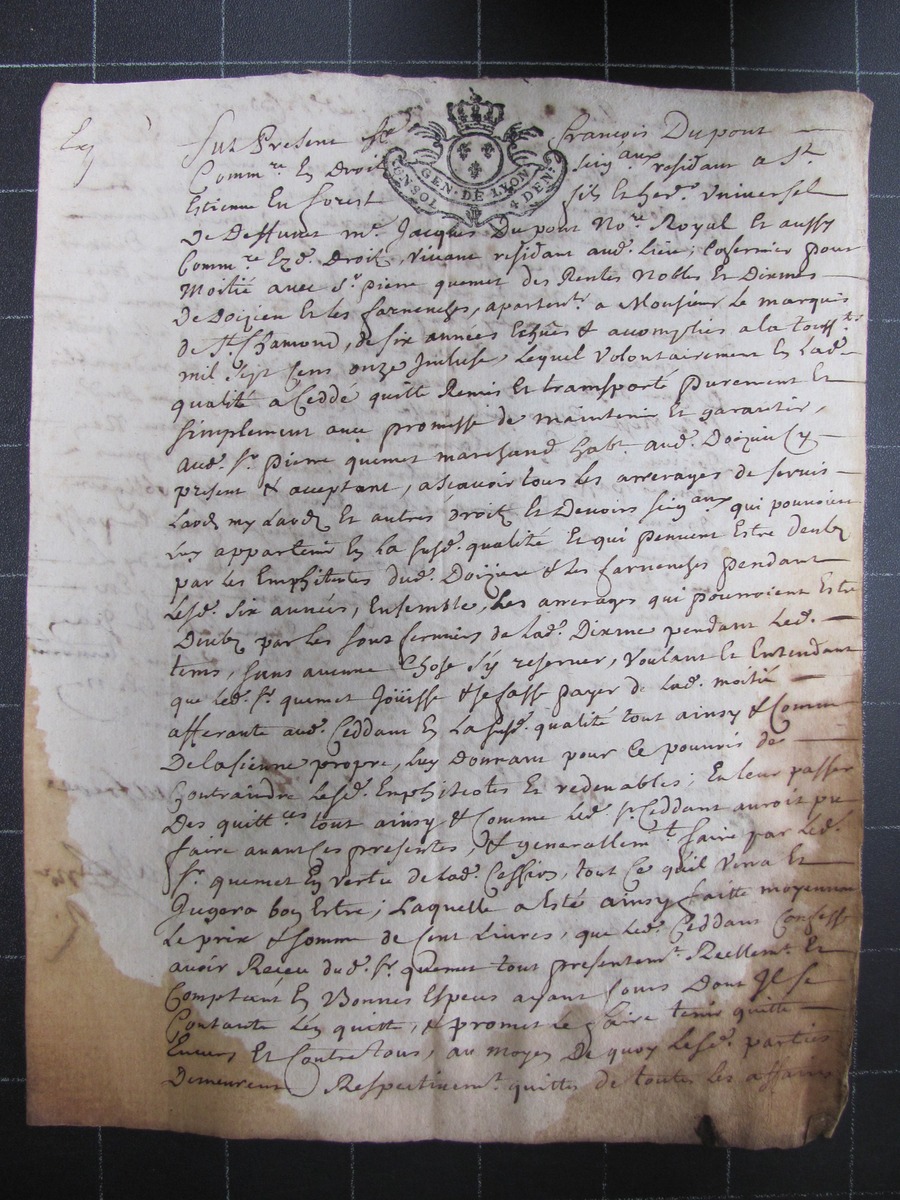 Fut Present Sr. François Dupont
Commre. En Droitz seigaux residant a St.
Estienne En forest fils et hered. Universel
De Deffunt me. Jacques Dupont Nore. Royal Et aussy
Commre. Ezd. Droitz, vivant residant aud. Lieu, Cofermier pour
Moitié avec Sr. pierre quemet des Rentes Nobles Et Dixmes
De Doizieu Et les farnenches, apartents. a Monsieur Le marquis
de St. Chamond, de six années Echües & acomplies a la toussts.
mil sept Cens onze Incluse, Lequel volontairement En lad.
qualité a Ceddé quitté Remis Et transporté purement Et
simplement avec promesse de maintenir Et garantir,
aud. Sr. pierre quemet marchand habt. aud. Doizieu Cy
present & aceptant, ascavoir tous les arrerages de servis
Laodz my Laodz Et autres droitz Et Devoirs seigaux qui pouvoient
Luy appartenir En La susd. qualité Et qui peuvent Estre deubz
par les Emphiteotes dud. Doizieu & les farnenches pendant
Lesd. six années, Ensemble, les arrerages qui pourroient Estre
Deubz par les sous fermiers de lad. Dixme pendant Led.
tems, sans aucune Chose s'y reserver, voulant Et Entendant
que Led. Sr. quemet Joüisse & se fasse payer de lad. moitié
afferante aud. Ceddant En La susd. qualité tout ainsy & Comme
De la sienne propre, Luy donnant pour Ce pouvoir de
Contraindre Lesd. Emphiteotes Et redevables; En leur passer
Des quittces. tout ainsy & Comme Led. Sr. Ceddant auroit pu
faire avant Ces presentes, & generallemt. faire par Led.
Sr. quemet En vertu de lad. Cession, tout Ce qu'il verra Et
Jugera bon Estre; Laquelle a Esté ainsy faitte moyennant
Le prix & somme de Cent Livres, que Led. Ceddant Confesse
avoir Receu dud. Sr. quemet tout presentemt. Reellemt. Et
Comptant En Bonnes Especes ayant Cours Dont Il se
Contante L'en quitte, & promet le faire tenir quitte
Envers Et Contre tous, au moyen De quoy Lesd. parties
Demeurent Respectivemt. quittes de toutes les affaires
GEN. DE LYON
4 DEN.